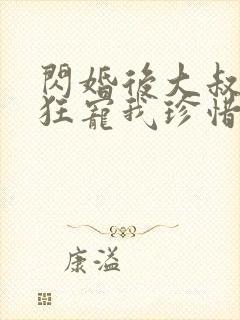 閃婚後大叔
狂寵我珍惜
康溢